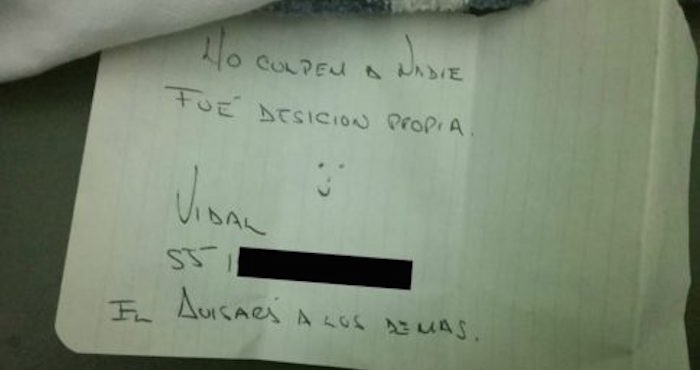 No culpen a Nadie
Fué desicion propia.
Vidal
55 1
El Avisará a los demas.